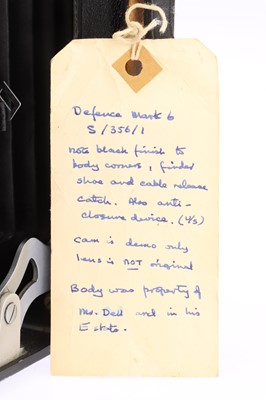 Defence Mark 6
S/356/1
note black finish to
body corners, finder
shoe and cable release
catch. Also anti-
closure device. (4/s)
cam is demo only
lens is NOT original
Body was property of
Mr. Dell and in his
Estate.